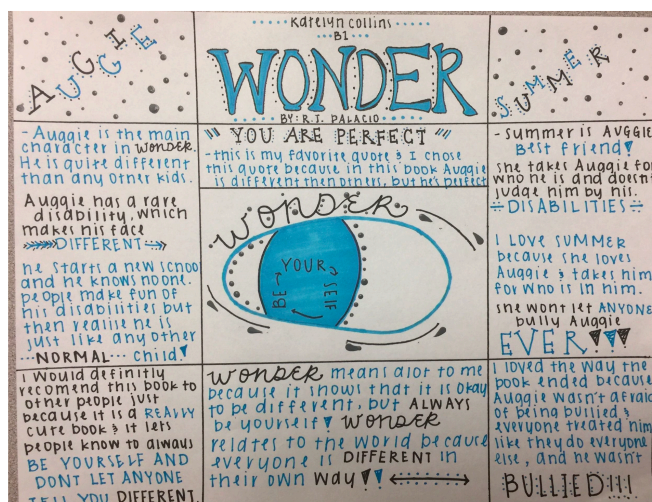 Katelyn Collins
B1
WONDER
BY: R.J. PALACIO
AUGGIE
- Auggie is the main
character in WONDER.
He is quite different
than any other kids.
Auggie has a rare
disability, which
makes his face
DIFFERENT
he starts a new schoo
and he knows no one.
people make fun of
his disabilities but
then realise he is
just like any other
...NORMAL... child!
"YOU ARE PERFECT"
- this is my favorite quote & I chose
this quote because in this book Auggie
is different then others, but he's perfect
WONDER
BE YOUR SELF
SUMMER
- summer is AUGGIE
Best friend!
she takes Auggie for
who he is and doesn't
judge him by his.
DISABILITIES
I LOVE SUMMER
because she loves
Auggie & takes him
for who is in him.
she wont let ANYONE
bully Auggie
EVER!!!
I would definitly
recomend this book to
other people just
because it is a REALLY
cute book & it lets
people know to always
BE YOURSELF AND
DONT LET ANYONE
TELL YOU DIFFERENT.
WONDER means alot to me
because it shows that it is okay
to be different, but ALWAYS
be yourself! WONDER
relates to the world because
everyone is DIFFERENT in
their own way!!
I loved the way the
book ended because
Auggie wasn't afraid
of being bullied &
everyone treated him
like they do everyone
else, and he wasn't
BULLIED!!!